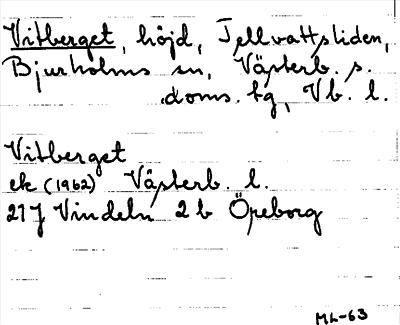 Vitberget, höjd, Tellvattsliden,
Bjurholms sn, Västerb. s.
doms. tg, Vb. l.
Vitberget
ek (1962) Västerb. l.
21J Vindeln 2b Öreborg
ML-63